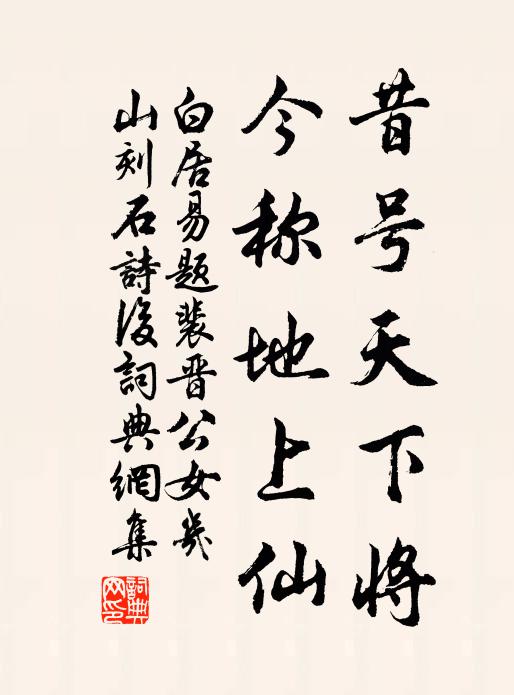 昔号天下将
今称地上仙
白居易题裴晋公女几
山刻石詩後詞典網集
詞典
网印